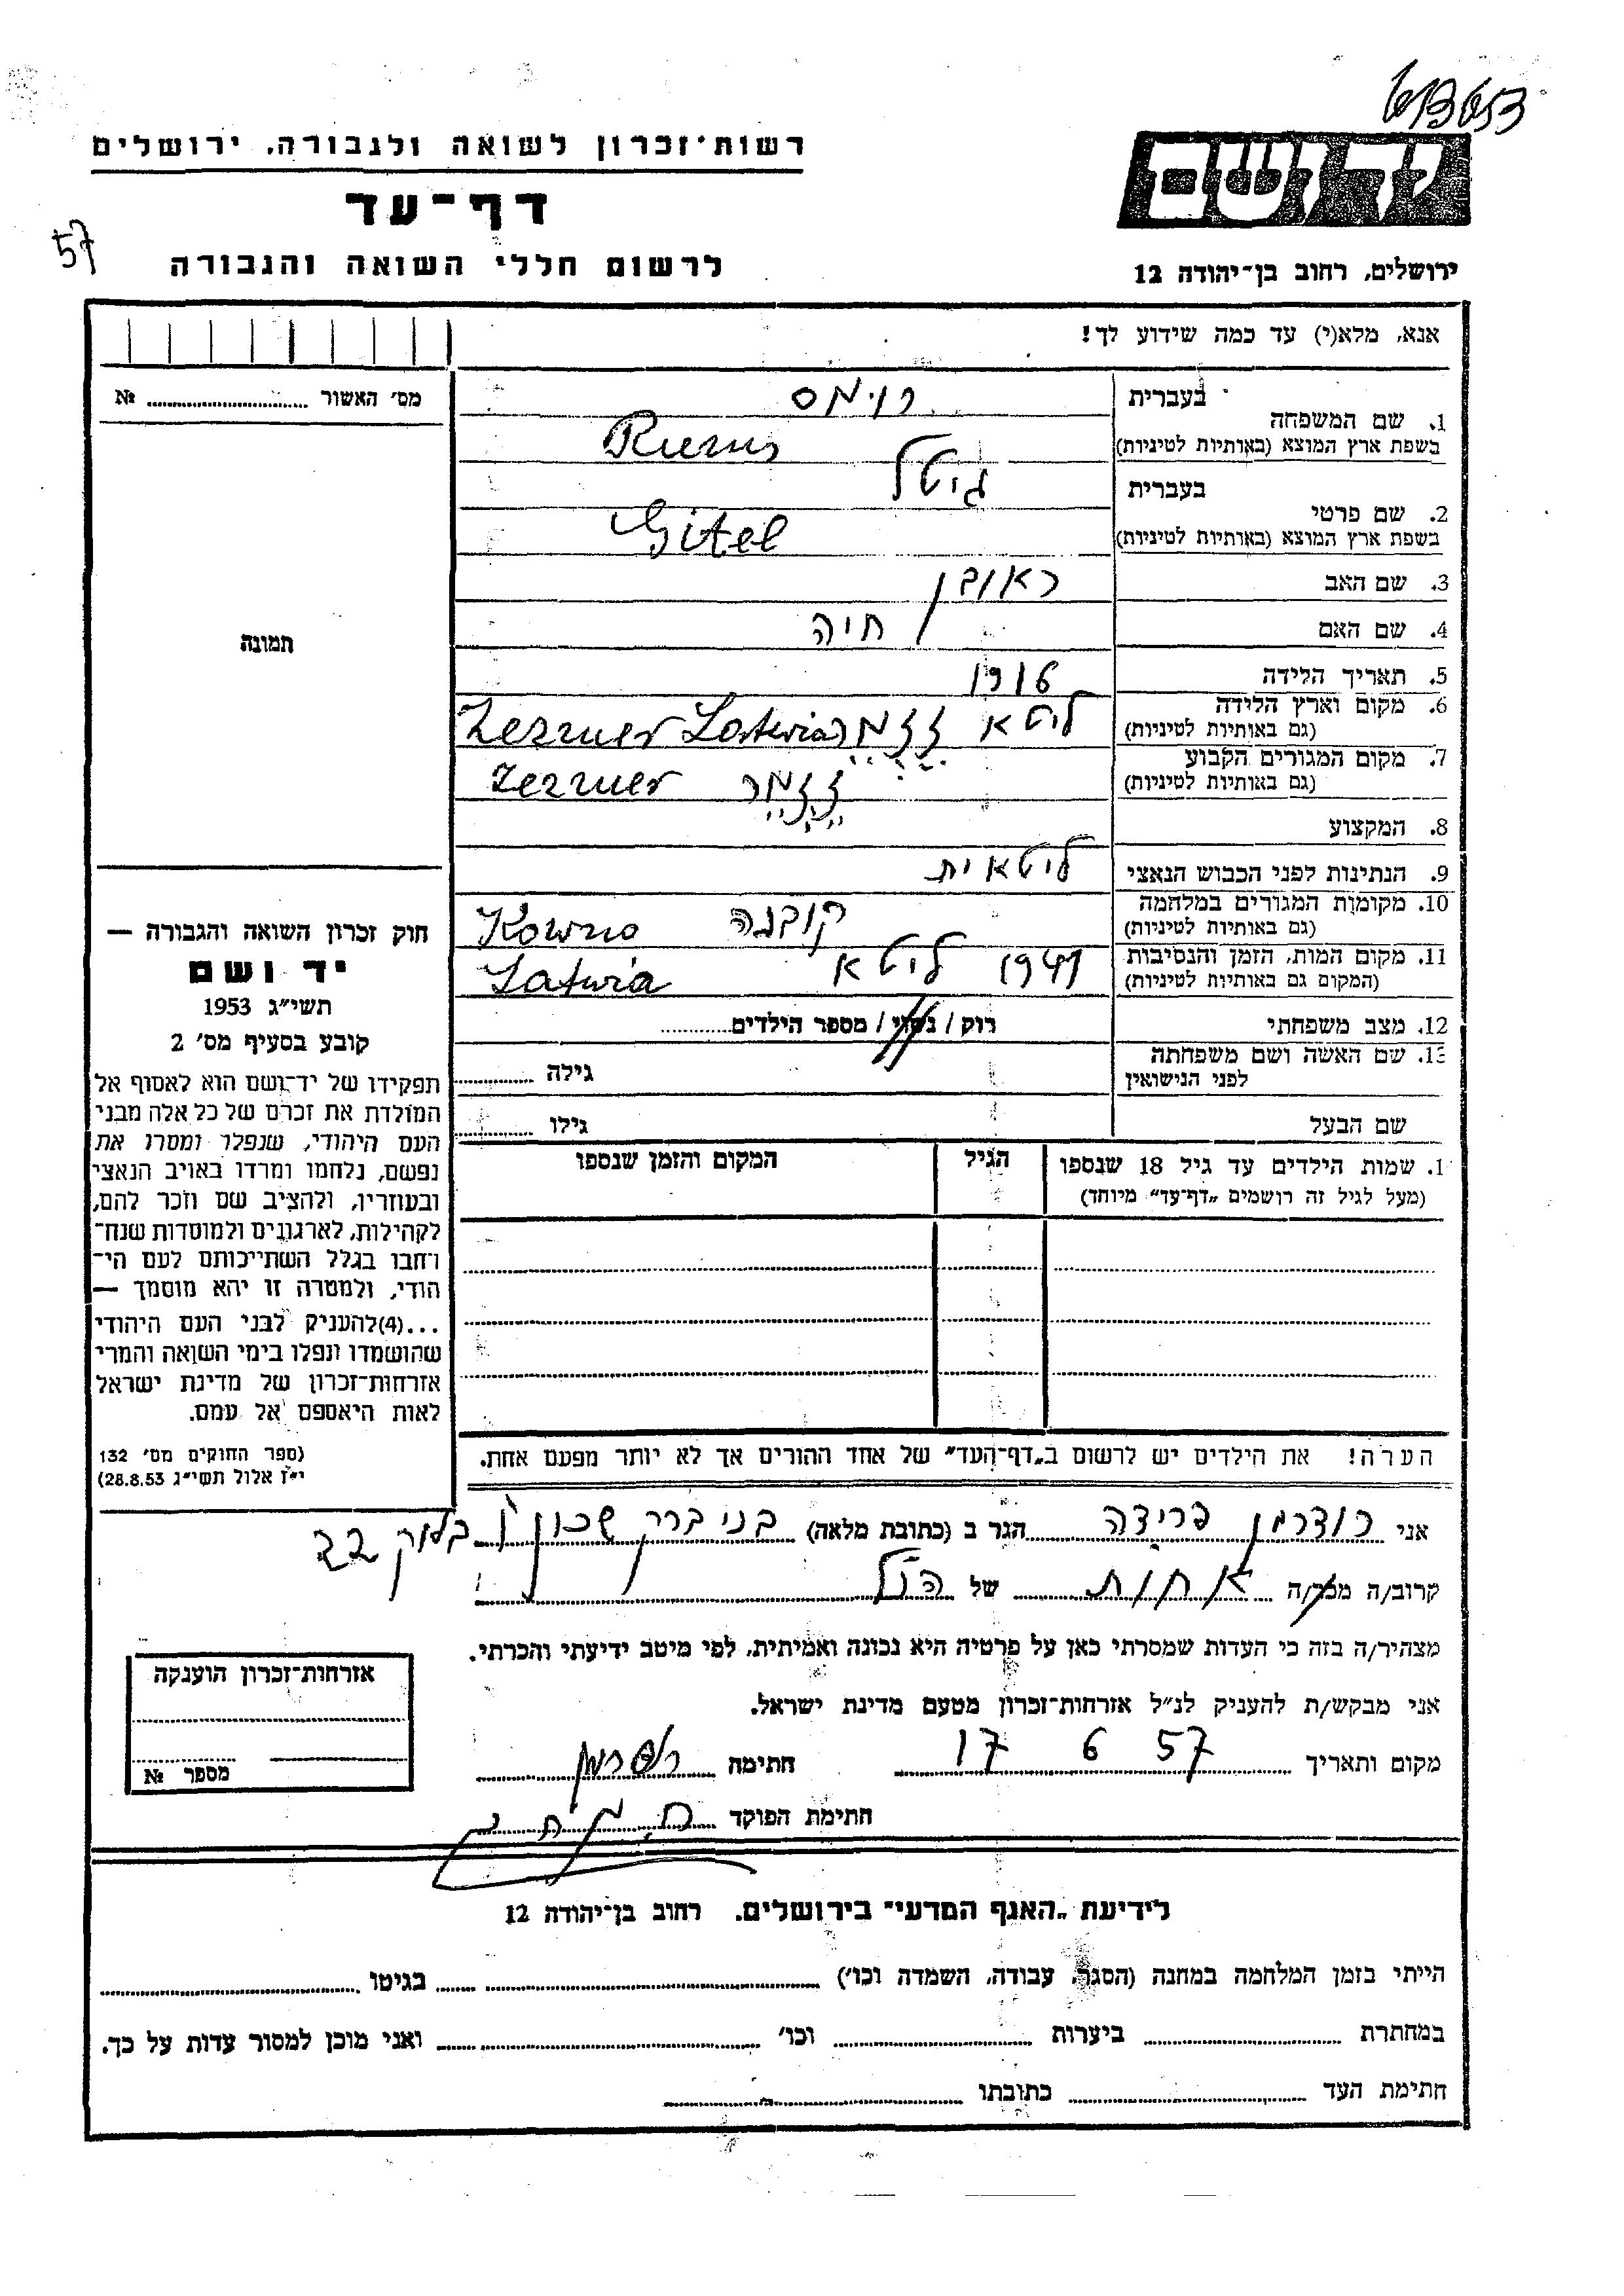 רשות־זכרון לשואה ולגבורה, ירושלים
דף־עד
57
לרשום חללי השואה והגבורה
יד ושם
ירושלים, רחוב בן־יהודה 12
אנא, מלא(י) עד כמה שידוע לך!
מס׳ האשור № ........
תמונה
1. שם המשפחה בעברית רוימס
בשפת ארץ המוצא (באותיות לטיניות) Ruems
2. שם פרטי בעברית גיטל
בשפת ארץ המוצא (באותיות לטיניות) Gitel
3. שם האב ראובן
4. שם האם חיה
5. תאריך הלידה 1916
6. מקום וארץ הלידה (גם באותיות לטיניות) ליטא זזמר Zezmer Latwia
7. מקום המגורים הקבוע (גם באותיות לטיניות) זזמר Zezmer
8. המקצוע
9. הנתינות לפני הכבוש הנאצי ליטאית
10. מקומות המגורים במלחמה (גם באותיות לטיניות) קובנה Kowno
11. מקום המות, הזמן והנסיבות (המקום גם באותיות לטיניות) 1941 ליטא Latwia
12. מצב משפחתי רוק / נשוי / מספר הילדים........
13. שם האשה ושם משפחתה לפני הנישואין גילה ........
שם הבעל גילו ........
1. שמות הילדים עד גיל 18 שנספו הגיל המקום והזמן שנספו
(מעל לגיל זה רושמים „דף־עד״ מיוחד)
הערה! את הילדים יש לרשום ב„דף־העד״ של אחד ההורים אך לא יותר מפעם אחת.
חוק זכרון השואה והגבורה —
יד ושם
תשי״ג 1953
קובע בסעיף מס׳ 2
תפקידו של יד־ושם הוא לאסוף אל
המולדת את זכרם של כל אלה מבני
העם היהודי, שנפלו ומסרו את
נפשם, נלחמו ומרדו באויב הנאצי
ובעוזריו, ולהציב שם וזכר להם,
לקהילות, לארגונים ולמוסדות שנח־
רחבו בגלל השתייכותם לעם הי־
הודי, ולמטרה זו יהא מוסמך —
...(4)להעניק לבני העם היהודי
שהושמדו ונפלו בימי השואה והמרי
אזרחות־זכרון של מדינת ישראל
לאות היאספם אל עמם.
(ספר החוקים מס׳ 132
י״ז אלול תשי״ג 28.8.53)
אני רודרמן פרידה הגר ב (כתובת מלאה) בני ברק שכון ו בלוק 22
קרוב/ה מכר/ה אחות של הנ״ל
מצהיר/ה בזה כי העדות שמסרתי כאן על פרטיה היא נכונה ואמיתית, לפי מיטב ידיעתי והכרתי.
אני מבקש/ת להעניק לנ״ל אזרחות־זכרון מטעם מדינת ישראל.
מקום ותאריך 17 6 57 חתימה
חתימת הפוקד
אזרחות־זכרון הוענקה
מספר №
לידיעת „האגף המדעי״ בירושלים, רחוב בן־יהודה 12
הייתי בזמן המלחמה במחנה (הסגר, עבודה, השמדה וכו׳) ........ בגיטו ........
במחתרת ........ ביערות ........ וכו׳ ........ ואני מוכן למסור עדות על כך.
חתימת העד ........ כתובתו ........